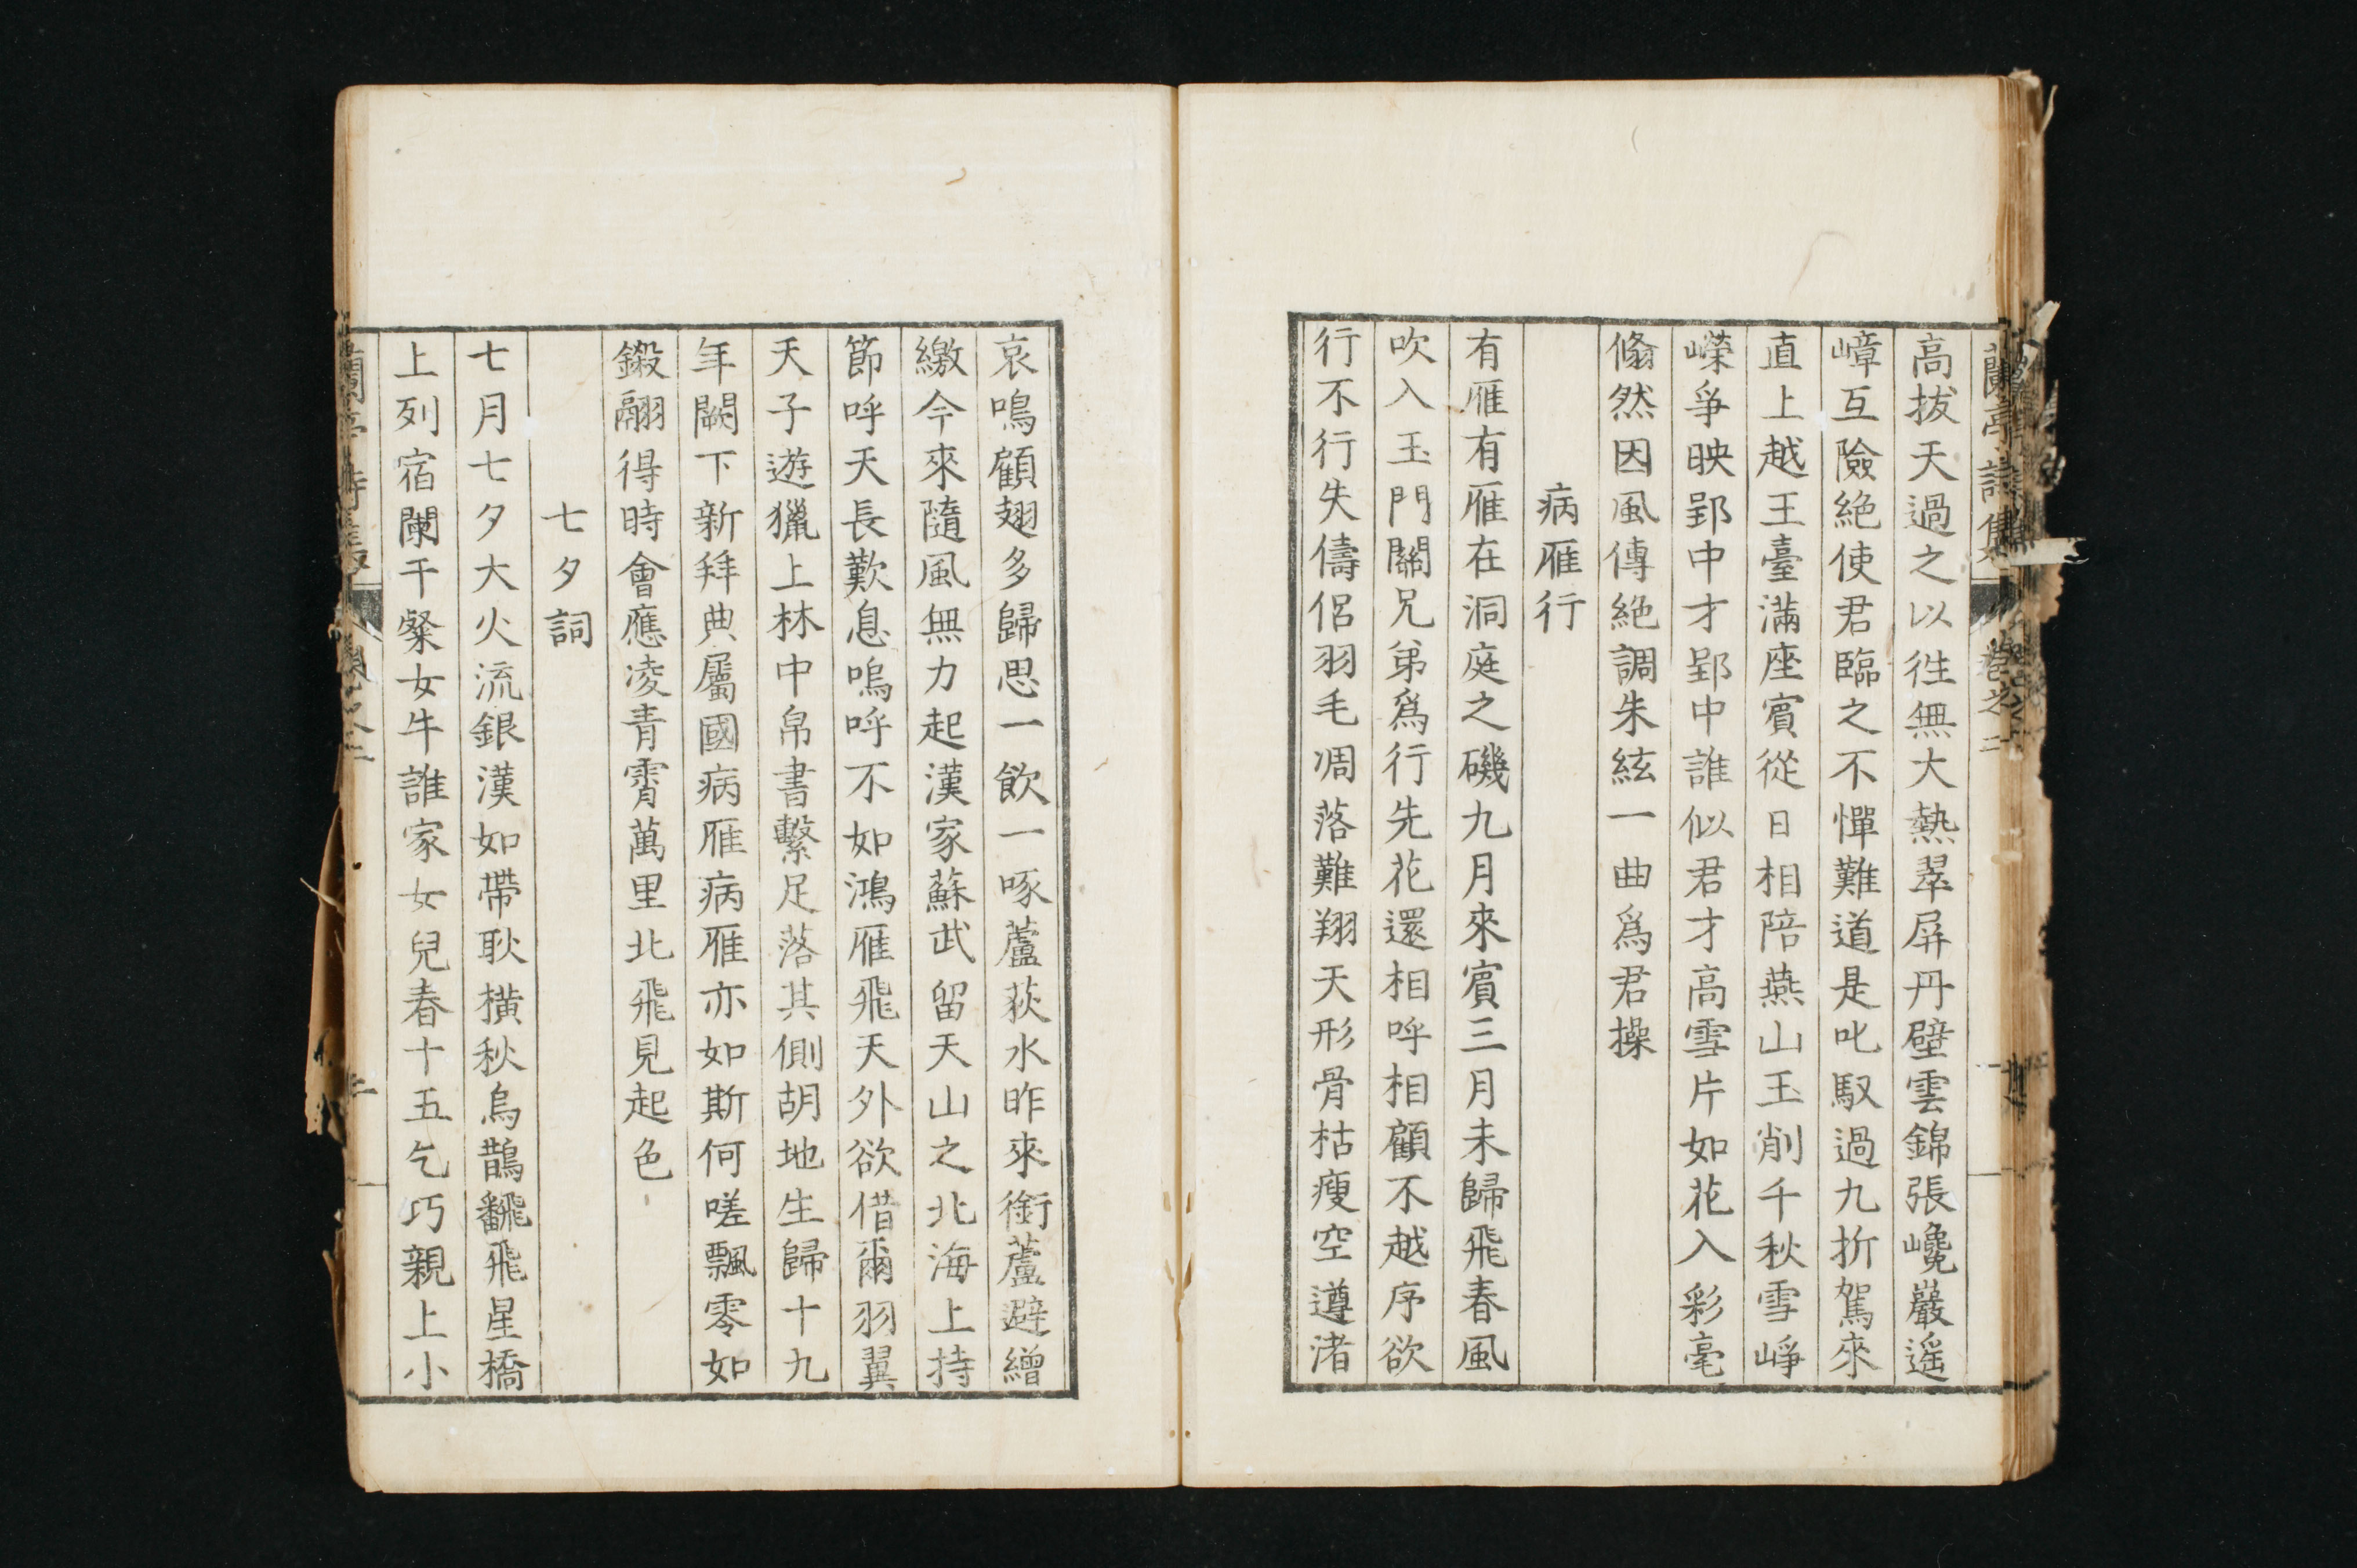 高拔天過之以徃無大熱翠屏丹壁雲錦張巉巖遥
嶂互險絶使君臨之不憚難道是叱馭過九折駕來
直上越王臺滿座賔從日相陪燕山玉削千秋雪崢
嶸爭映郢中才郢中誰似君才高雪片如花入彩毫
翛然因風傳絶調朱絃一曲爲君操
病雁行
有雁有雁在洞庭之磯九月來賔三月未歸飛春風
吹入玉門關兄弟爲行先花還相呼相顧不越序欲
行不行失儔侶羽毛凋落難翔天形骨枯瘦空遵渚
哀鳴顧翅多歸思一飲一啄蘆荻水昨來銜蘆避繒
繳今來隨風無力起漢家蘇武留天山之北海上持
節呼天長歎息嗚呼不如鴻雁飛天外欲借爾羽翼
天子遊獵上林中帛書繫足落其側胡地生歸十九
年闕下新拜典屬國病雁病雁亦如斯何嗟飄零如
鎩翮得時會應凌青霄萬里北飛見起色
七夕詞
七月七夕大火流銀漢如帶耿橫秋烏鵲飜飛星橋
上列宿闌干粲女牛誰家女兒春十五乞巧親上小